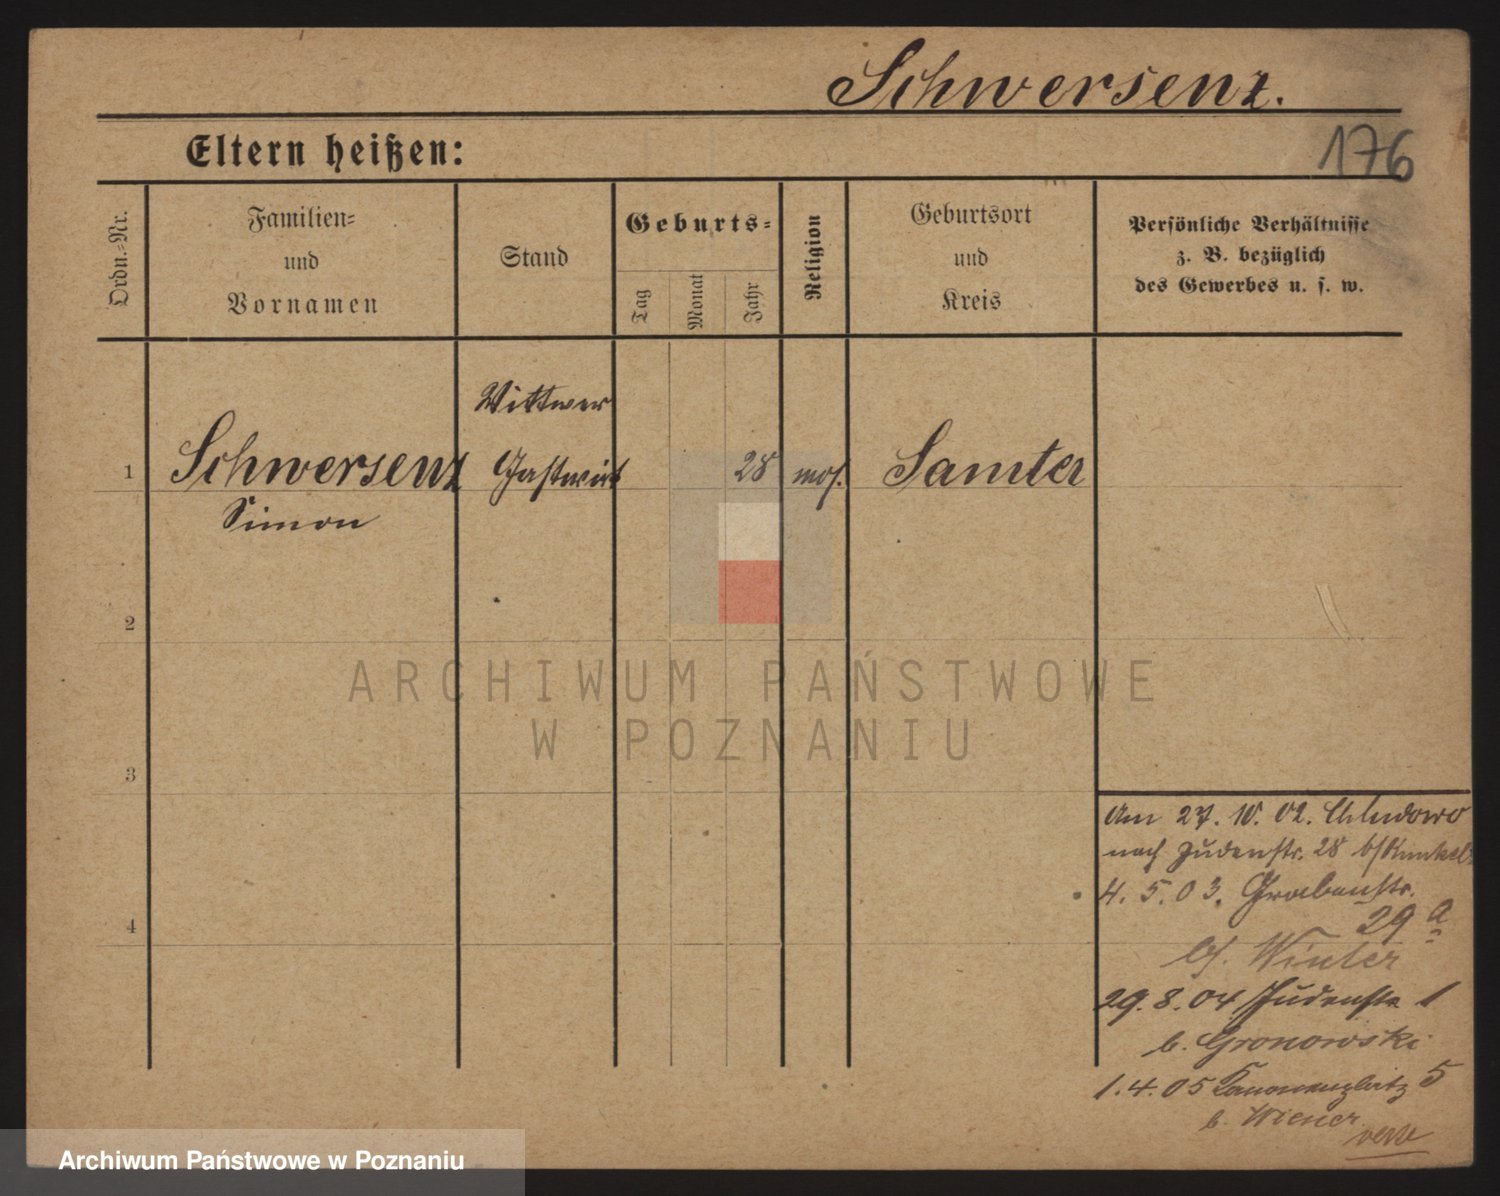 Schwersenz.
176
Eltern heißen:
Ordn.-Nr.
Familien-
und
Vornamen
Stand
Geburts-
Tag
Monat
Jahr
Religion
Geburtsort
und
Kreis
Persönliche Verhältnisse
z. B. bezüglich
des Gewerbes u. s. w.
Wittwer
1 Schwersenz Gastwirt 28 mos. Samter
Simon
2
ARCHIWUM PAŃSTWOWE
W POZNANIU
3
Am 27. 10. 02. Chludowo
nach Judenstr. 28 b/Kunkel
4. 5. 03. Grabenstr.
29 a
b/. Winter
4
29. 8. 04 Judenstr 1
b. Gronowski
1. 4. 05 Kanonenplatz 5
b. Wiener
Archiwum Państwowe w Poznaniu